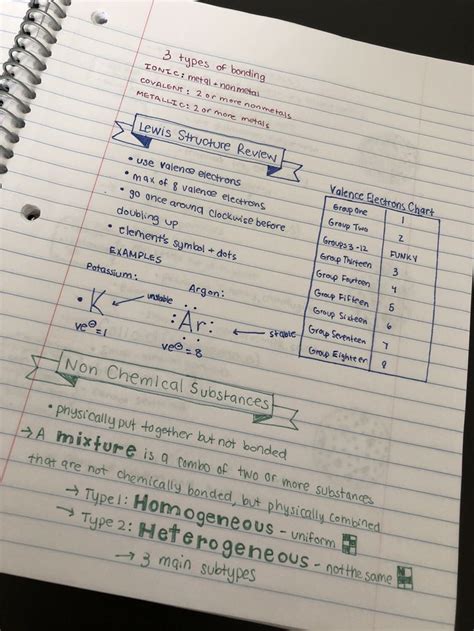 3 types of bonding
IONIC: metal + nonmetal
COVALENT: 2 or more nonmetals
METALLIC: 2 or more metals
Lewis Structure Review
• use valence electrons
• max of 8 valence electrons
• go once around clockwise before
doubling up
• element's symbol + dots
EXAMPLES
Potassium:
•K
unstable
ve⊖=1
Argon:
Ar
stable
ve⊖=8
Valence Electrons Chart
Group One 1
Group Two 2
Groups 3-12 FUNKY
Group Thirteen 3
Group Fourteen 4
Group Fifteen 5
Group Sixteen 6
Group Seventeen 7
Group Eighteen 8
Non Chemical Substances
• physically put together but not bonded
→ A mixture is a combo of two or more substances
that are not chemically bonded, but physically combined
→ Type 1: Homogeneous - uniform
→ Type 2: Heterogeneous - not the same
→ 3 main subtypes